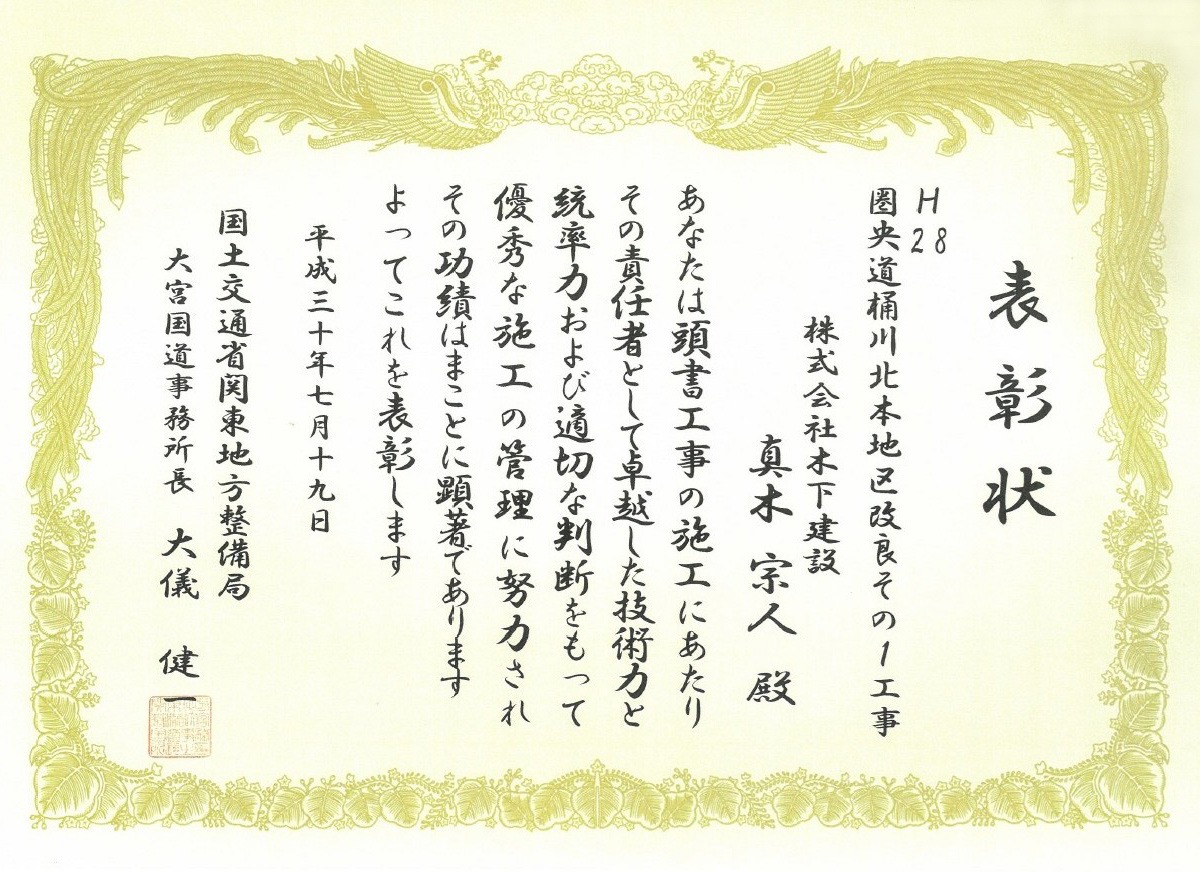 表彰状
H28
圏央道桶川北本地区改良その1工事
株式会社木下建設
真木宗人 殿
あなたは頭書工事の施工にあたり
その責任者として卓越した技術力と
統率力および適切な判断をもって
優秀な施工の管理に努力され
その功績はまことに顕著であります
よってこれを表彰します
平成三十年七月十九日
国土交通省関東地方整備局
大宮国道事務所長 大儀 健一